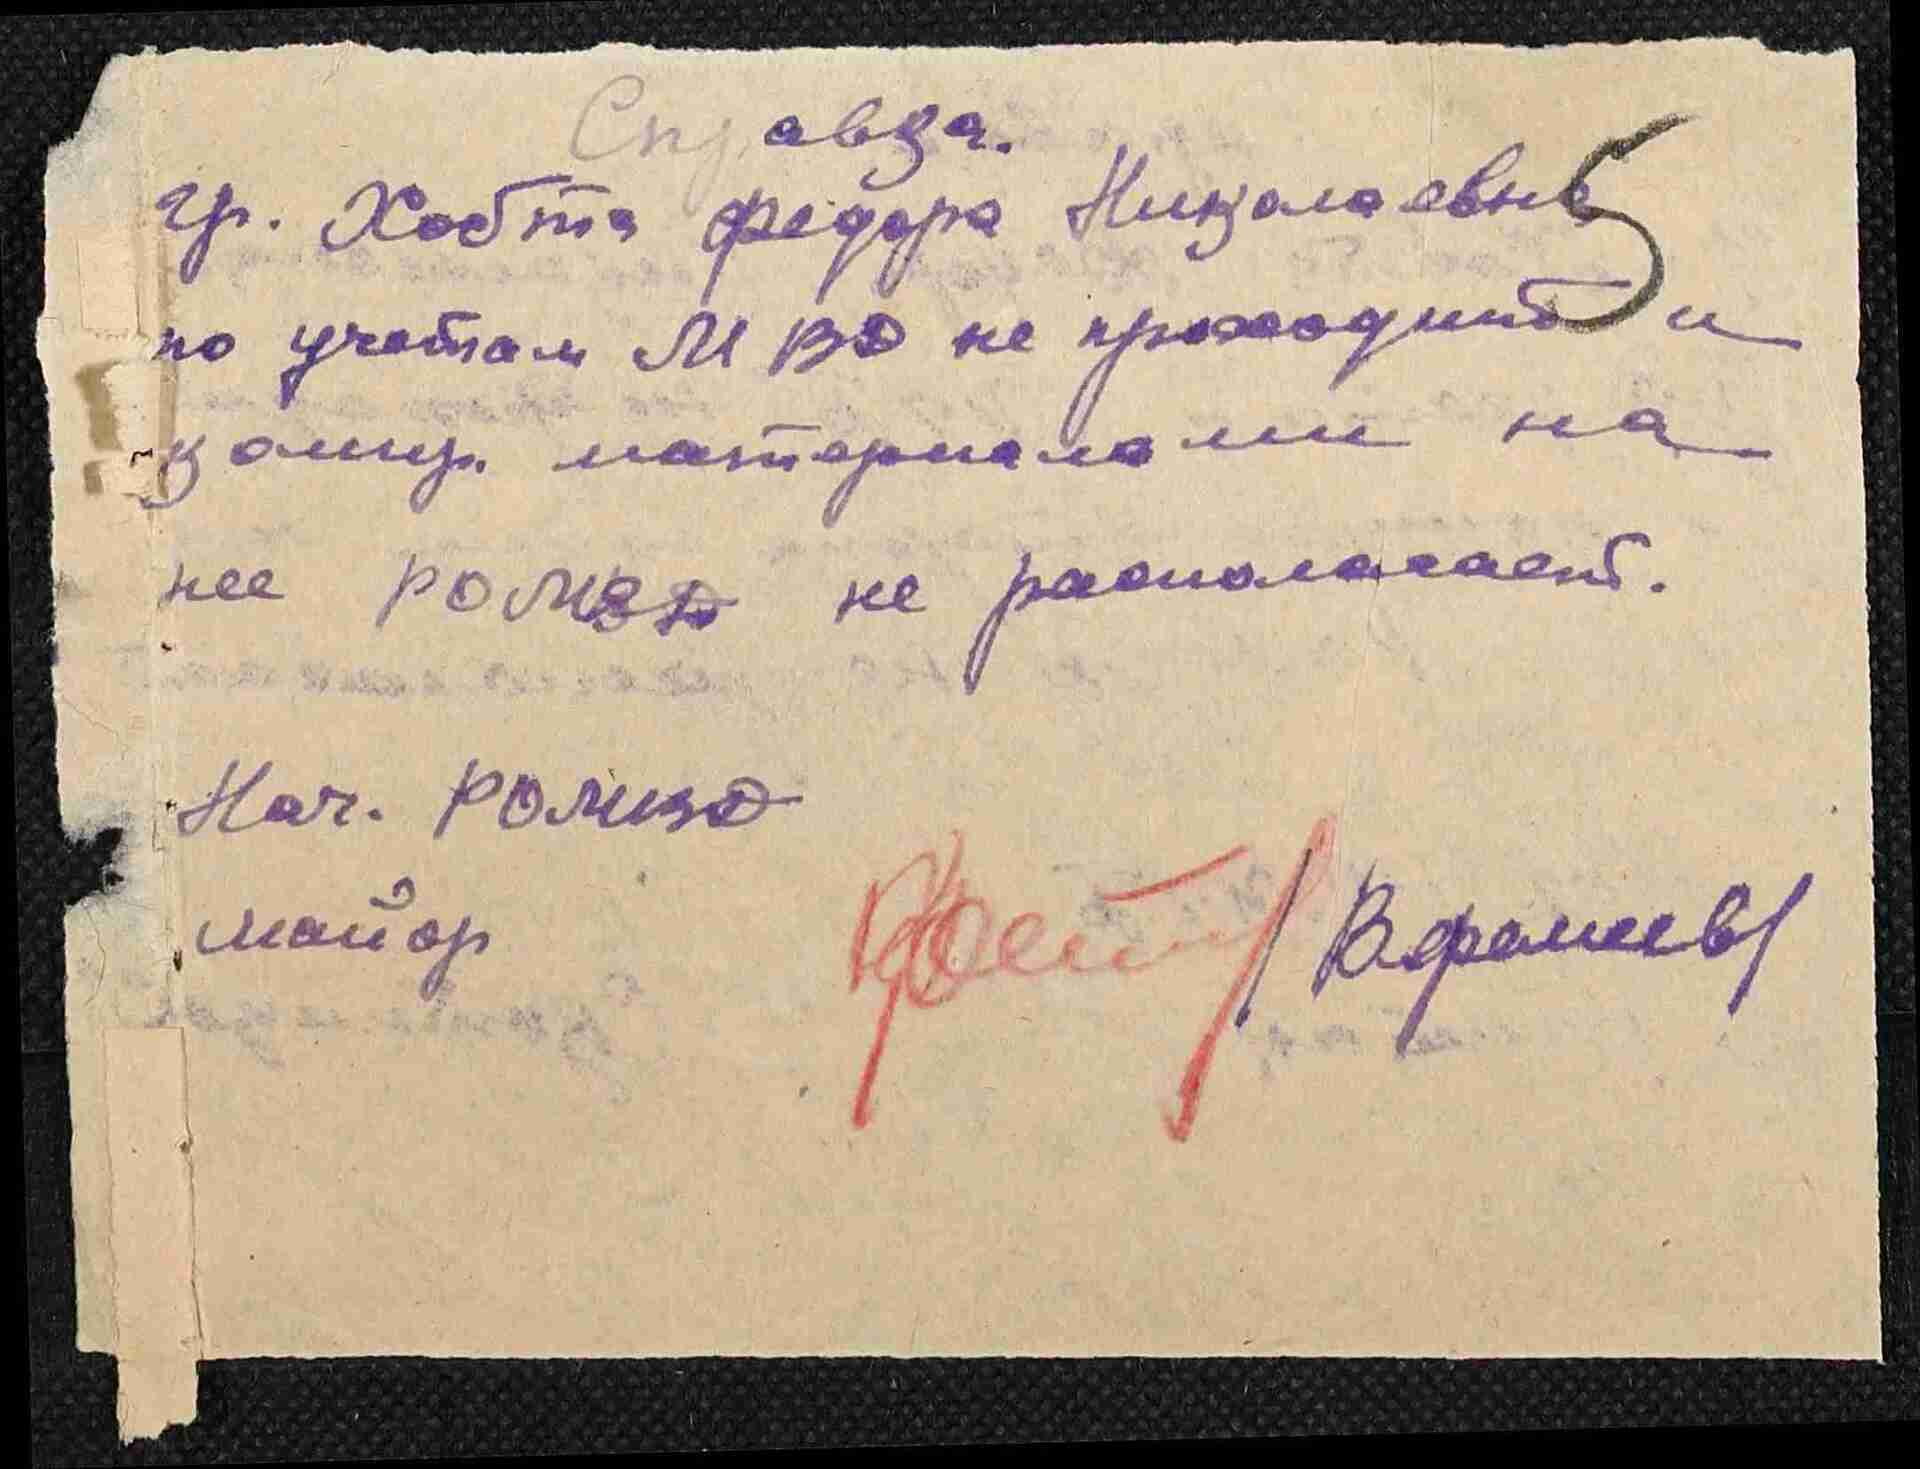 Справка.
гр. Хобта Федора Николаевна
по учетам МВД не проходит и
компр. материалами на
нее РОМВД не располагает.
Нач. РОМВД
майор /В.Фомеев/